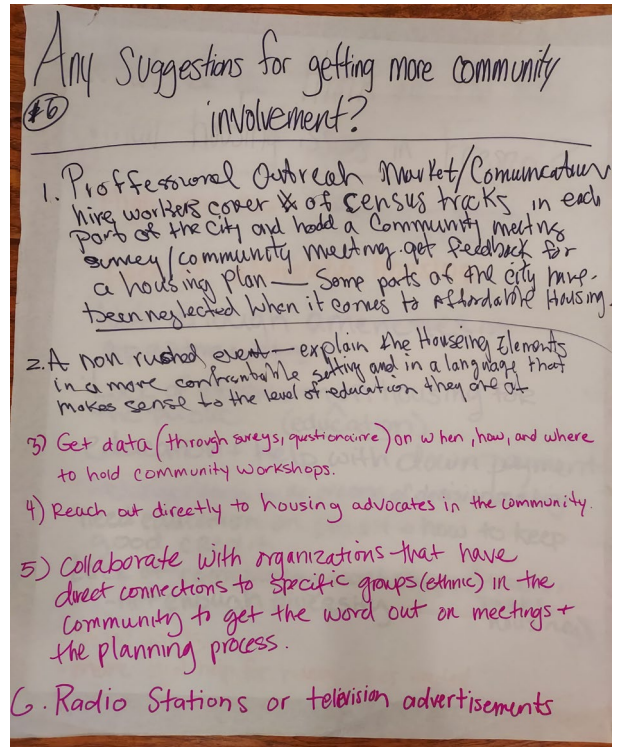 Any Suggestions for getting more community
#6 involvement?
1. Proffessional Outreah Market/Comumcation
hire workers cover % of census tracks in each
part of the City and hodd a Community meetng
survey/community meeting. get feedback for
a housing plan — Some parts of the city have
been neglected when it comes to Affordable Housing.
2. A non rushed event — explain the Houseing Elements
in a more confrontable setting and in a language that
makes sense to the level of education they are at
3) Get data (through sureys, qustionairre) on when, how, and where
to hold community workshops.
4) Reach out directly to housing advocates in the community.
5) Collaborate with organizations that have
direct connections to specific groups (ethnic) in the
community to get the word out on meetings +
the planning process.
6. Radio Stations or television advertisements